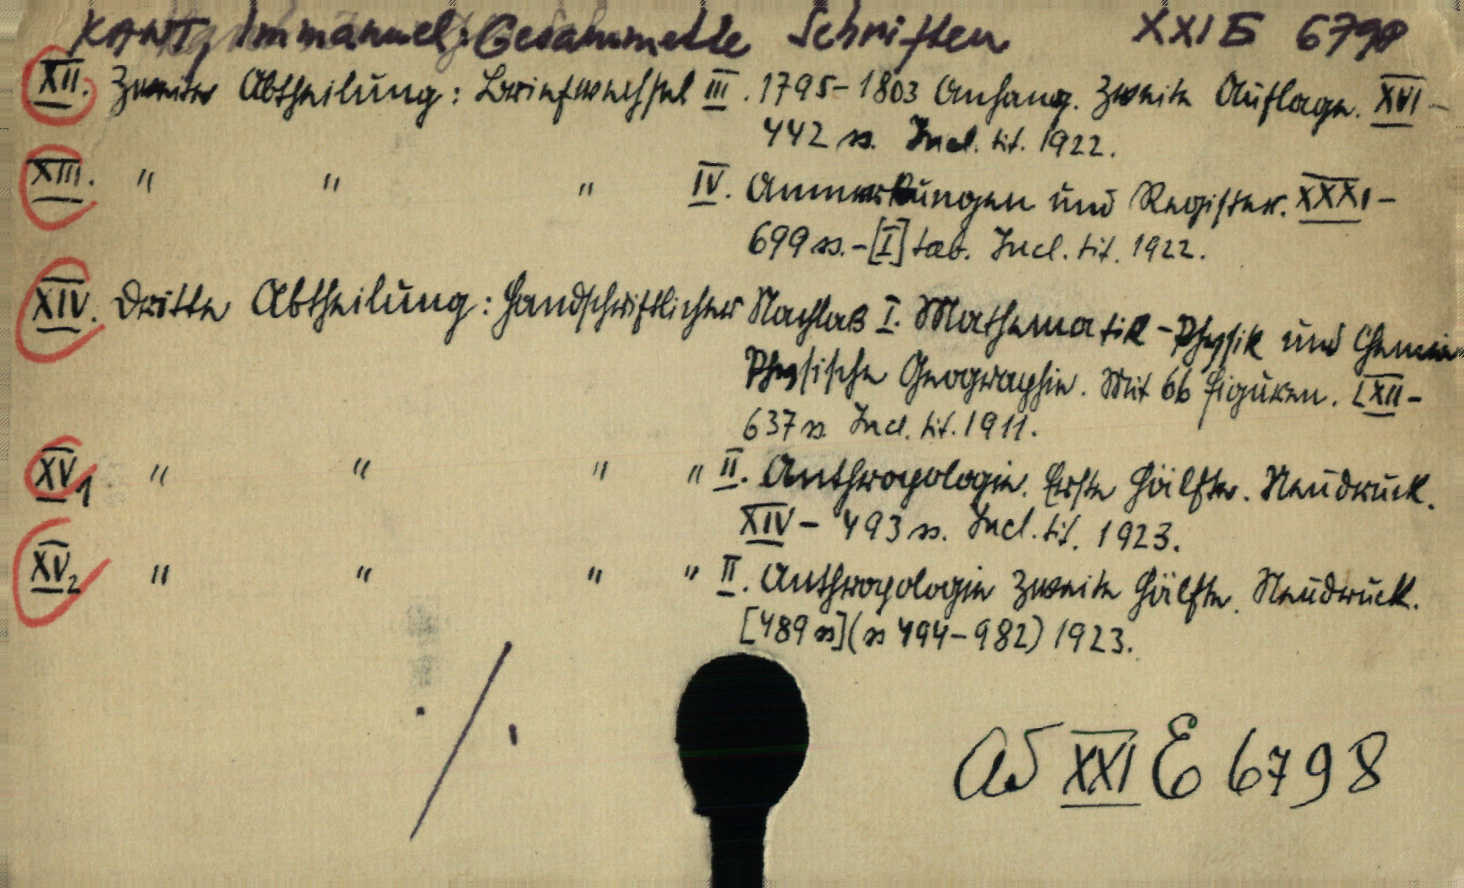 KANT, Immanuel: Gesammelte Schriften XXI E 6798
XII. Zweiter Abtheilung: Briefwechsel III. 1795-1803 Anhang. Zweite Auflage. XVI-
442 ss. Incl. tit. 1922.
XIII. " " " IV. Anmerkungen und Register. XXXI-
699 ss.-[I] tab. Incl. tit. 1922.
XIV. Dritte Abtheilung: Handschriftlicher Nachlaß I. Mathematik-Physik und Chemie
Physische Geographie. Mit 66 Figuren. LXII-
637 ss Incl. tit. 1911.
XV1 " " " " II. Anthropologie. Erste Hälfte. Neudruck.
XIV- 493 ss. Incl. tit. 1923.
XV2 " " " " II. Anthropologie Zweite Hälfte. Neudruck.
[489 ss] (ss 494-982) 1923.
./.
Ad XXI E 6798